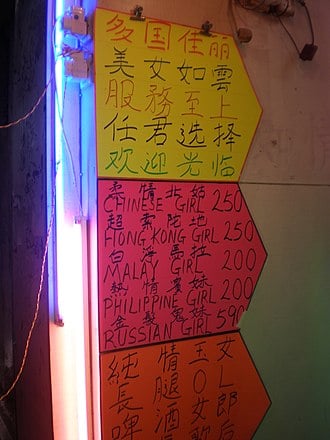 多国佳丽
美女如雲
服務至上
任君选择
欢迎光临
柔情北姬
CHINESE GIRL 250
超索陀地
HONG KONG GIRL 250
白淨馬拉
MALAY GIRL 200
熱情賓妹
PHILIPPINE GIRL 200
金髮鬼妹
RUSSIAN GIRL 590
純情玉女
長腿OL
啤酒女郎